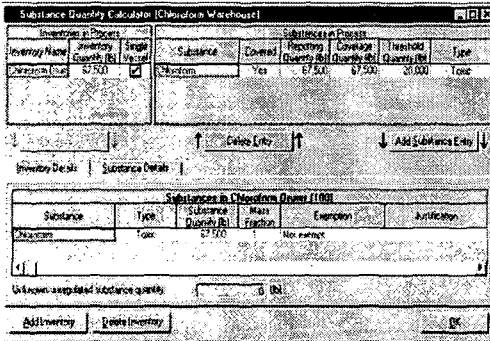 Substance Quantity Calculator [Chloroform Warehouse]
Inventories in Process
Substances in Process
Inventory Name
Inventory Quantity (lb)
Single Vessel
Substance
Covered
Reporting Quantity (lb)
Coverage Quantity (lb)
Threshold Quantity (lb)
Type
Chloroform Drum 67,500
Chloroform Yes 67,500 67,500 20,000 Toxic
Delete Entry
Add Substance Entry
Inventory Details Substance Details
Substances in Chloroform Drums (100)
Substance
Type
Substance Quantity (lb)
Mass Fraction
Exemption
Justification
Chloroform Toxic 67,500 Not exempt
Unknown unregulated substance quantity 0 (lb)
Add Inventory Delete Inventory OK